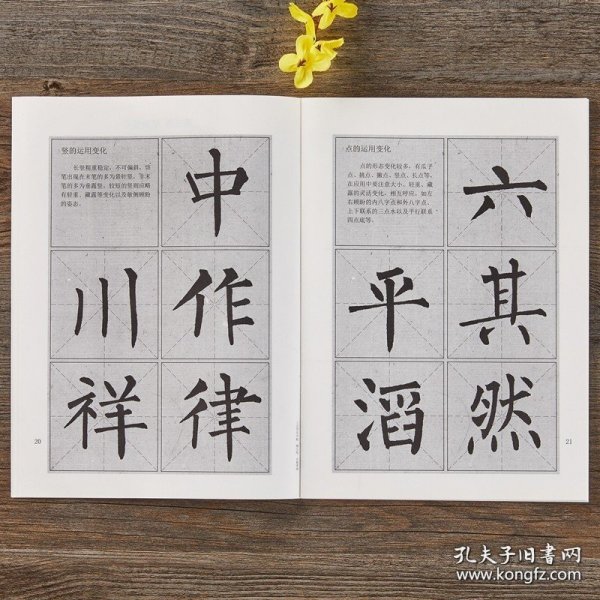 竖的运用变化
长竖粗重稳定，不可偏斜。竖
笔出现在末笔的多为悬针竖，非末
笔的多为垂露竖。较短的竖则应略
有轻重、藏露等变化以及欹侧顾盼
的姿态。
中
川
作
祥
律
20
点的运用变化
点的形态变化较多，有瓜子
点、挑点、撇点、竖点、长点等。
在应用中要注意大小、轻重、藏
露的灵活变化，相互呼应。如左
右顾盼的内八字点和外八字点、
上下联系的三点水以及平行联系
四点底等。
六
平
其
滔
然
21
孔夫子旧书网
www.kongfz.com